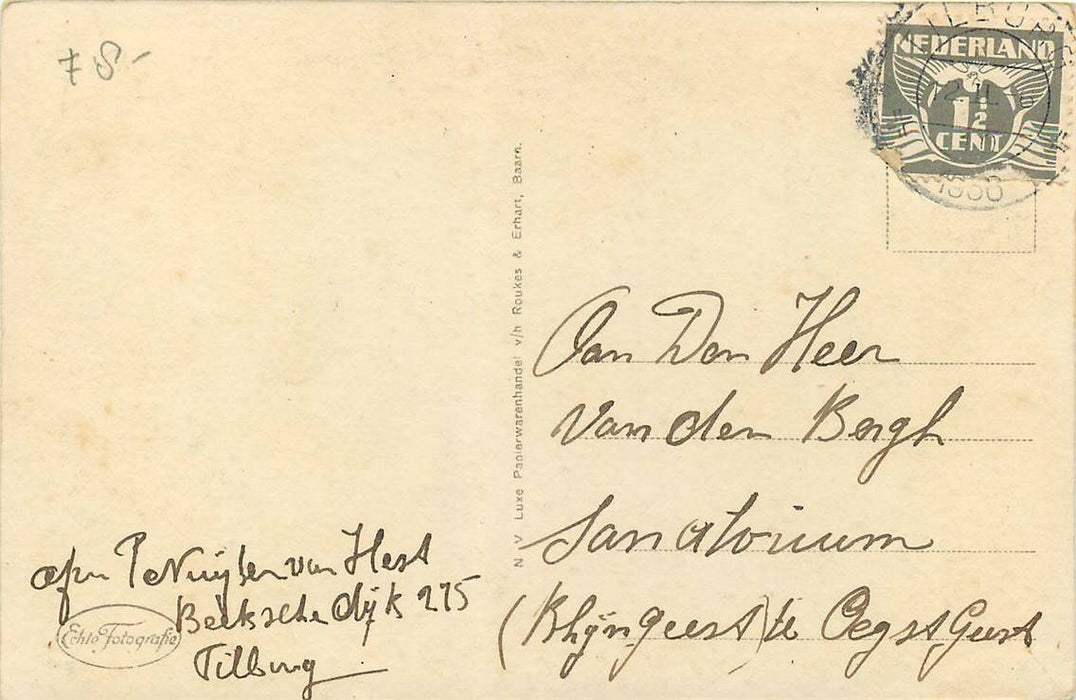 7 8-
TILBURG
1938
NEDERLAND
1½
CENT
N.V. Luxe Papierwarenhandel v/h Roukes & Erhart, Baarn.
Aan Den Heer
van den Bergh
Sanatorium
(Rhijngeest) te Oegstgeest
afz. P Nuijten van Hest
Beeksche dijk 275
Tilburg
Echte Fotografie